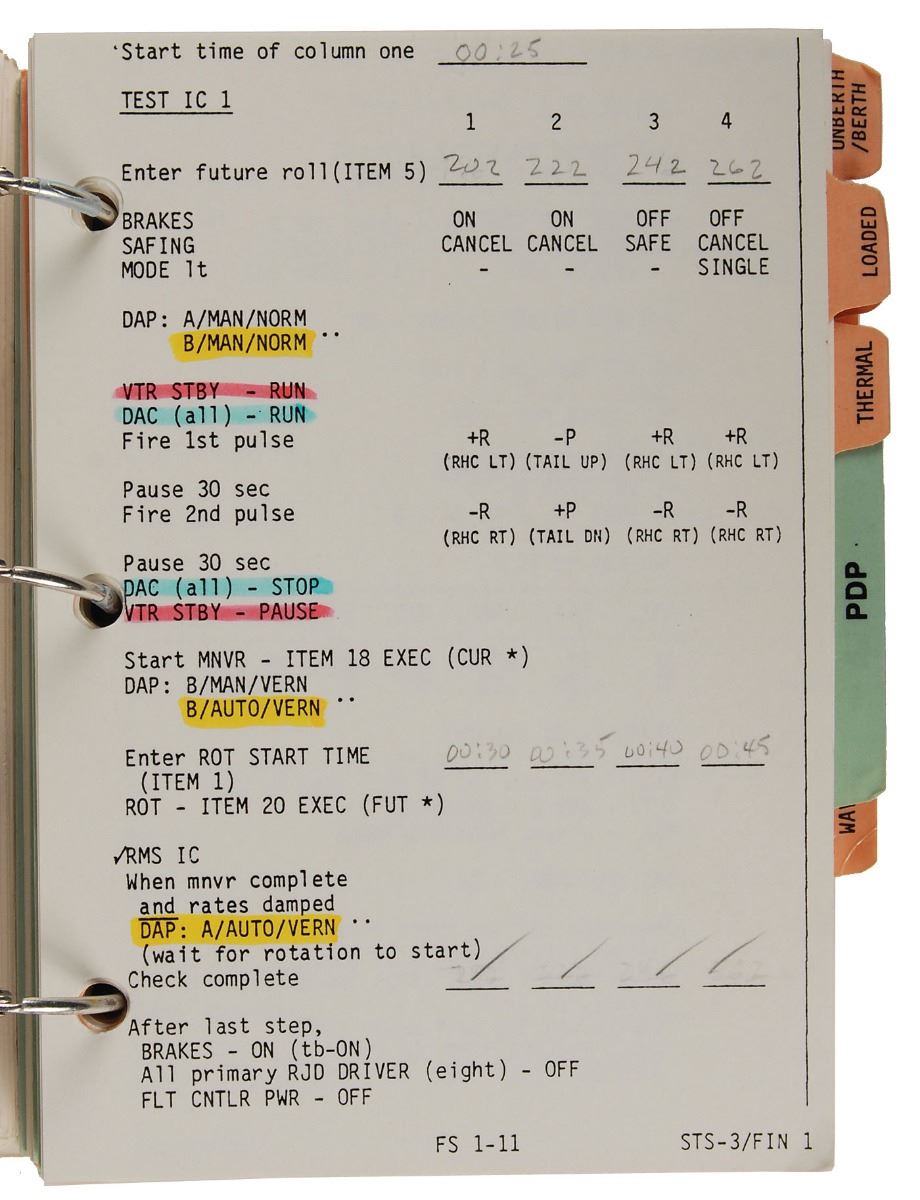 Start time of column one 00:25
TEST IC 1
1 2 3 4
Enter future roll(ITEM 5) 202 222 242 262
BRAKES ON ON OFF OFF
SAFING CANCEL CANCEL SAFE CANCEL
MODE lt - - - SINGLE
DAP: A/MAN/NORM
B/MAN/NORM ..
VTR STBY - RUN
DAC (all) - RUN
Fire 1st pulse +R -P +R +R
(RHC LT) (TAIL UP) (RHC LT) (RHC LT)
Pause 30 sec
Fire 2nd pulse -R +P -R -R
(RHC RT) (TAIL DN) (RHC RT) (RHC RT)
Pause 30 sec
DAC (all) - STOP
VTR STBY - PAUSE
Start MNVR - ITEM 18 EXEC (CUR *)
DAP: B/MAN/VERN
B/AUTO/VERN ..
Enter ROT START TIME 00:30 00:35 00:40 00:45
(ITEM 1)
ROT - ITEM 20 EXEC (FUT *)
✓RMS IC
When mnvr complete
and rates damped
DAP: A/AUTO/VERN ..
(wait for rotation to start)
Check complete / / / /
After last step,
BRAKES - ON (tb-ON)
All primary RJD DRIVER (eight) - OFF
FLT CNTLR PWR - OFF
FS 1-11 STS-3/FIN 1
UNBERTH
/BERTH
LOADED
THERMAL
PDP